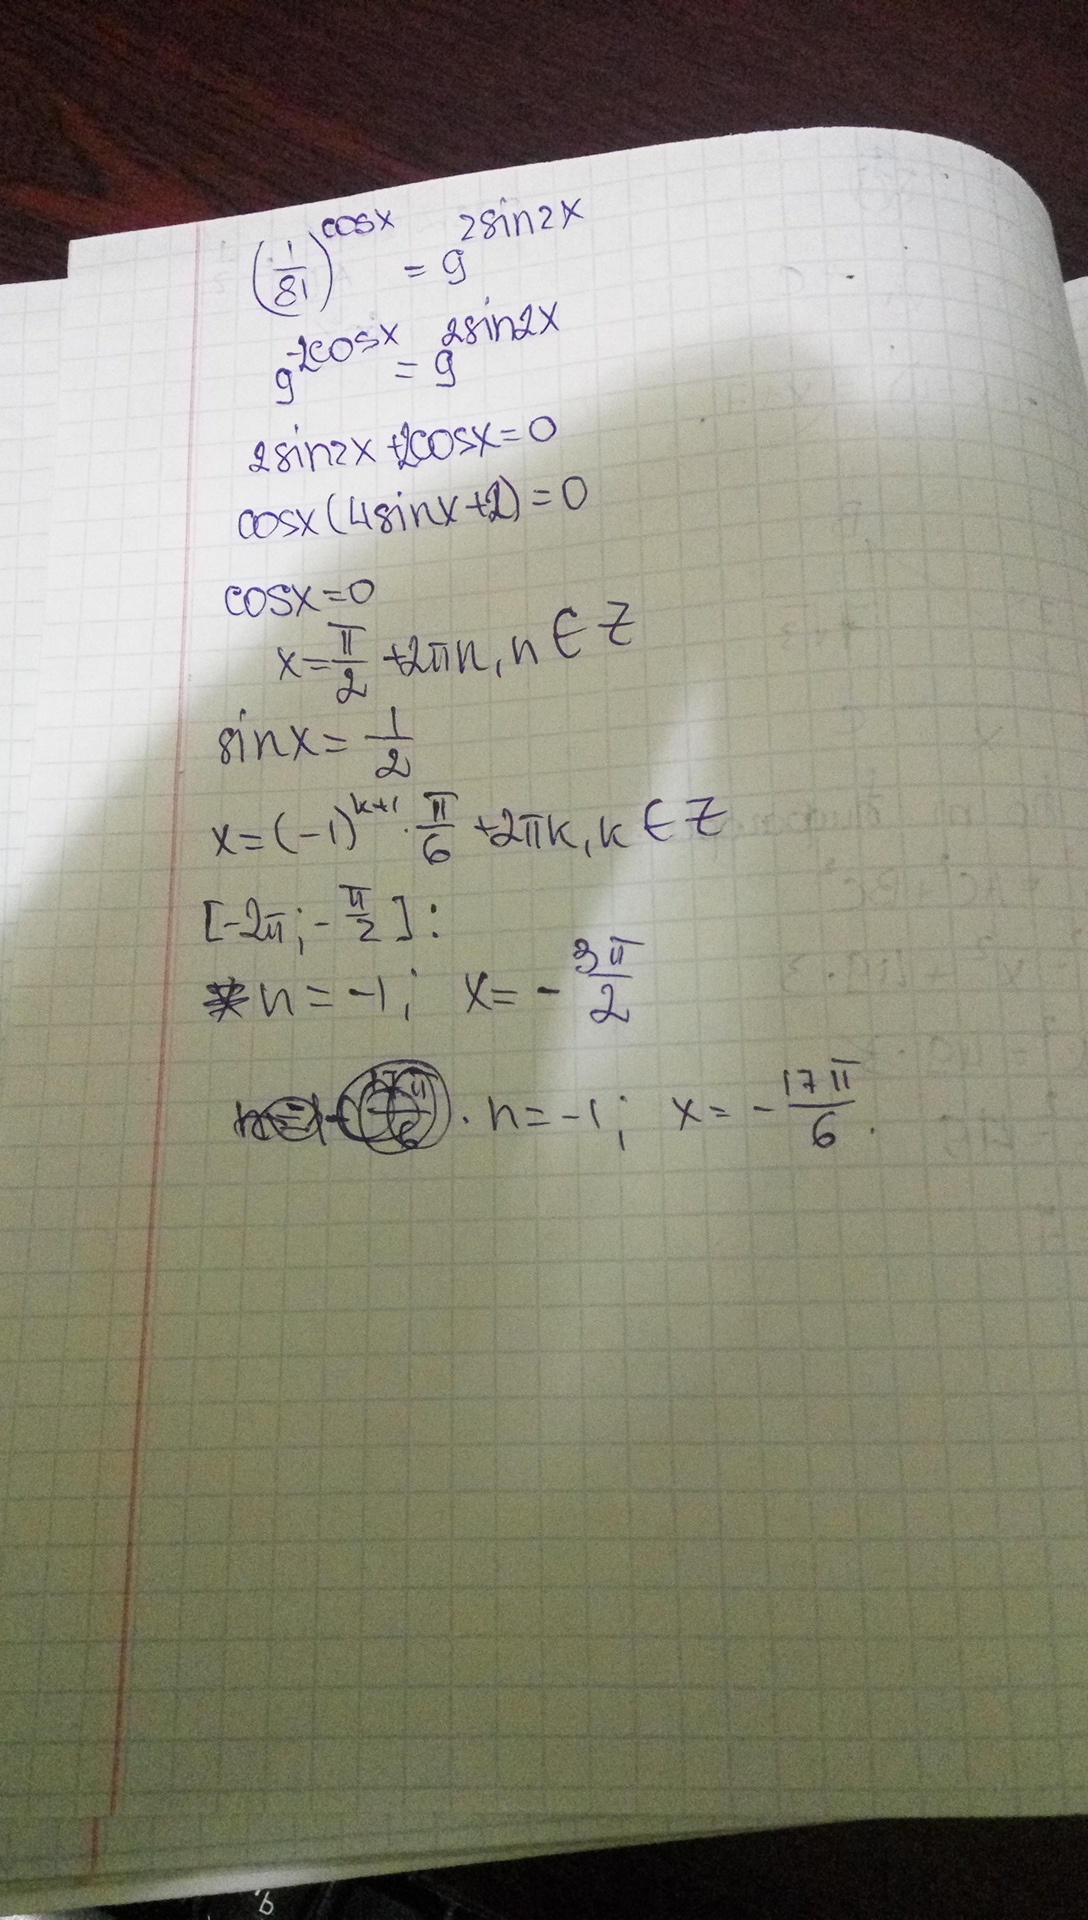 (1/81)^cosx = 9^2sin2x
9^-2cosx = 9^2sin2x
2sin2x+2cosx=0
cosx(4sinx+2)=0
cosx=0
x=π/2+2πn, n∈Z
sinx=1/2
x=(-1)^k+1·π/6+2πk, k∈Z
[-2π;-π/2]:
n=-1; x=-3π/2
n=-1; x=-17π/6.